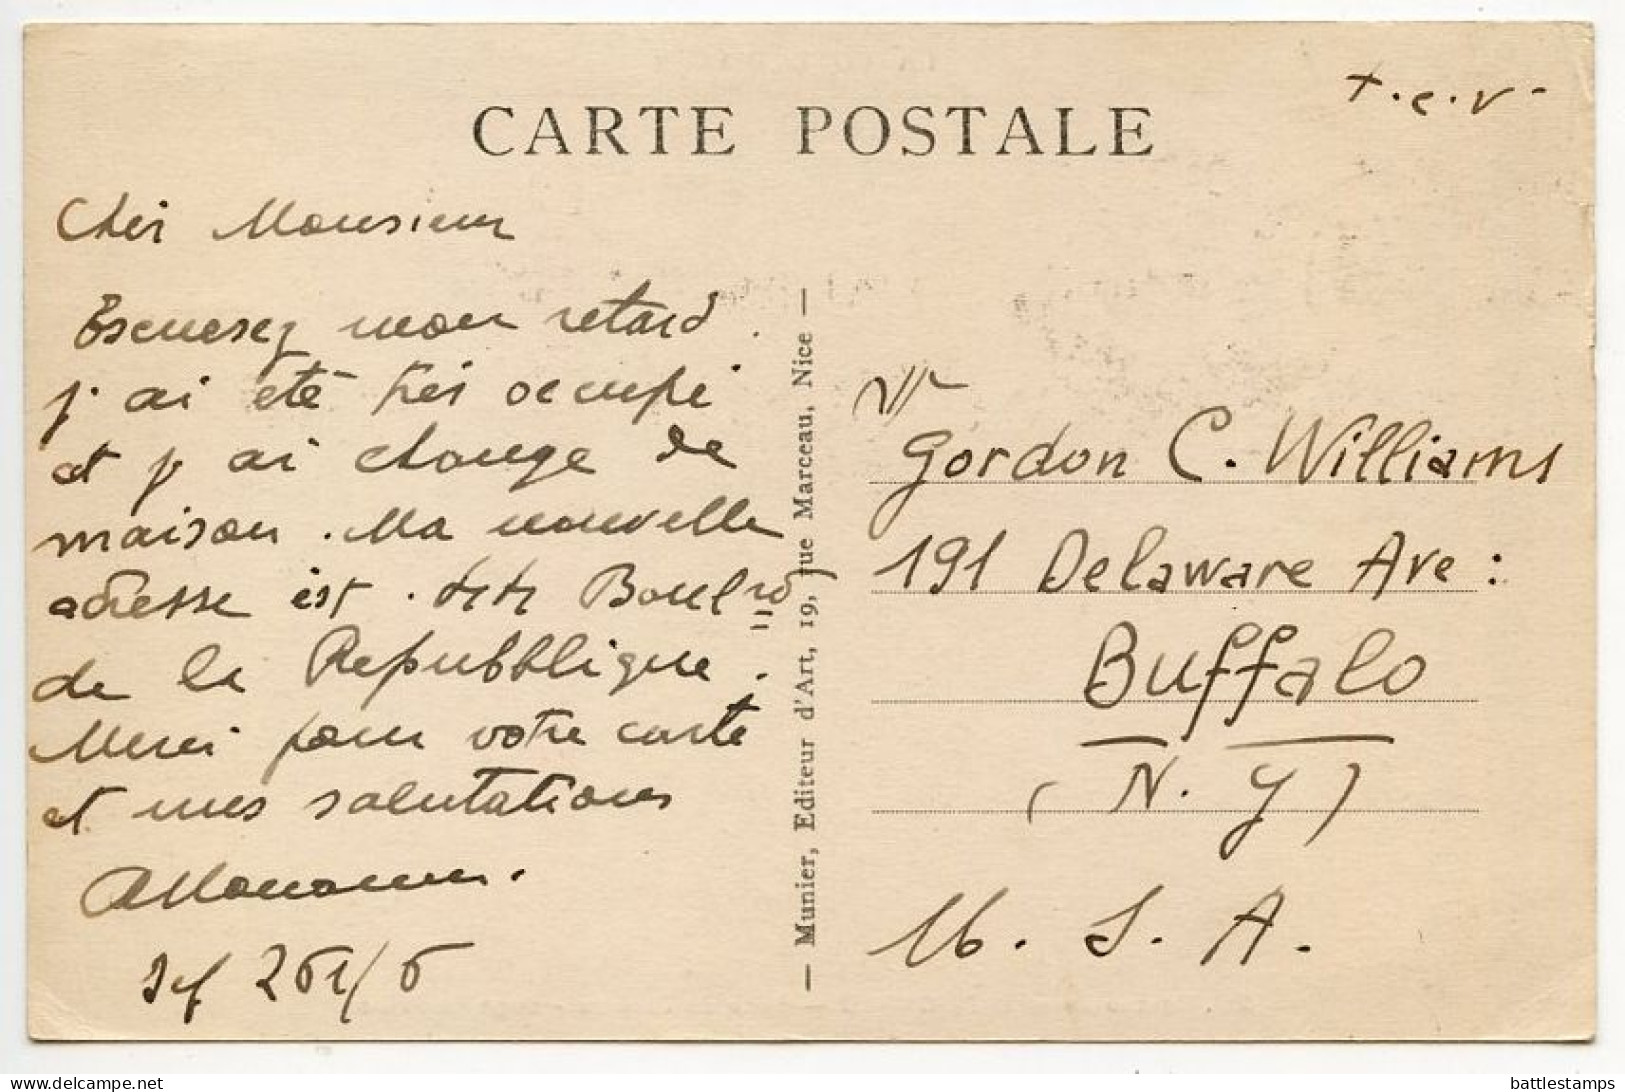 CARTE POSTALE
Cher Monsieur
Escusez mon retard.
j'ai été très occupé
et j'ai change de
maison. Ma nouvelle
adresse est. 44 Boulrd
de la Repubblique.
Merci pour votre carte
et mes salutations
— Munier, Editeur d'Art, 19, rue Marceau, Nice —
Gordon C. Williams
191 Delaware Ave:
Buffalo
(N.Y)
U.S.A.
delcampe.net
battlestamps